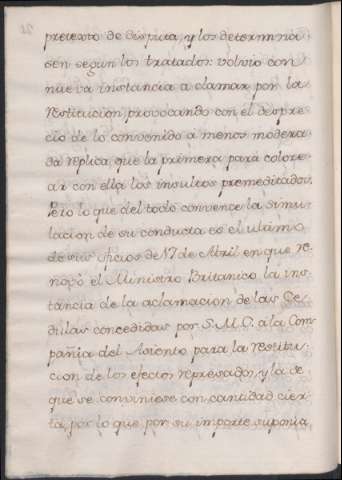 pretexto de disputa, y los determina
sen segun los tratados: volvio con
nueva instancia a clamar por la
restitucion, provocando con el despre
cio de lo convenido a menos modera
da replica, que la primera para colore
ar con ella los insultos premeditados.
Pero lo que del todo convence la simu
lacion de su conducta es el ultimo
de sus oficios de 17 de Abril, en que re
novó el Ministro Britanico la ins
tancia de la aclamacion de las Ce
dulas concedidas por S.M.C. a la Com
pañia del Asiento para la restitu
cion de los efectos represados, y la de
que se conviniese con cantidad cier
ta, por lo que por su importe suponia